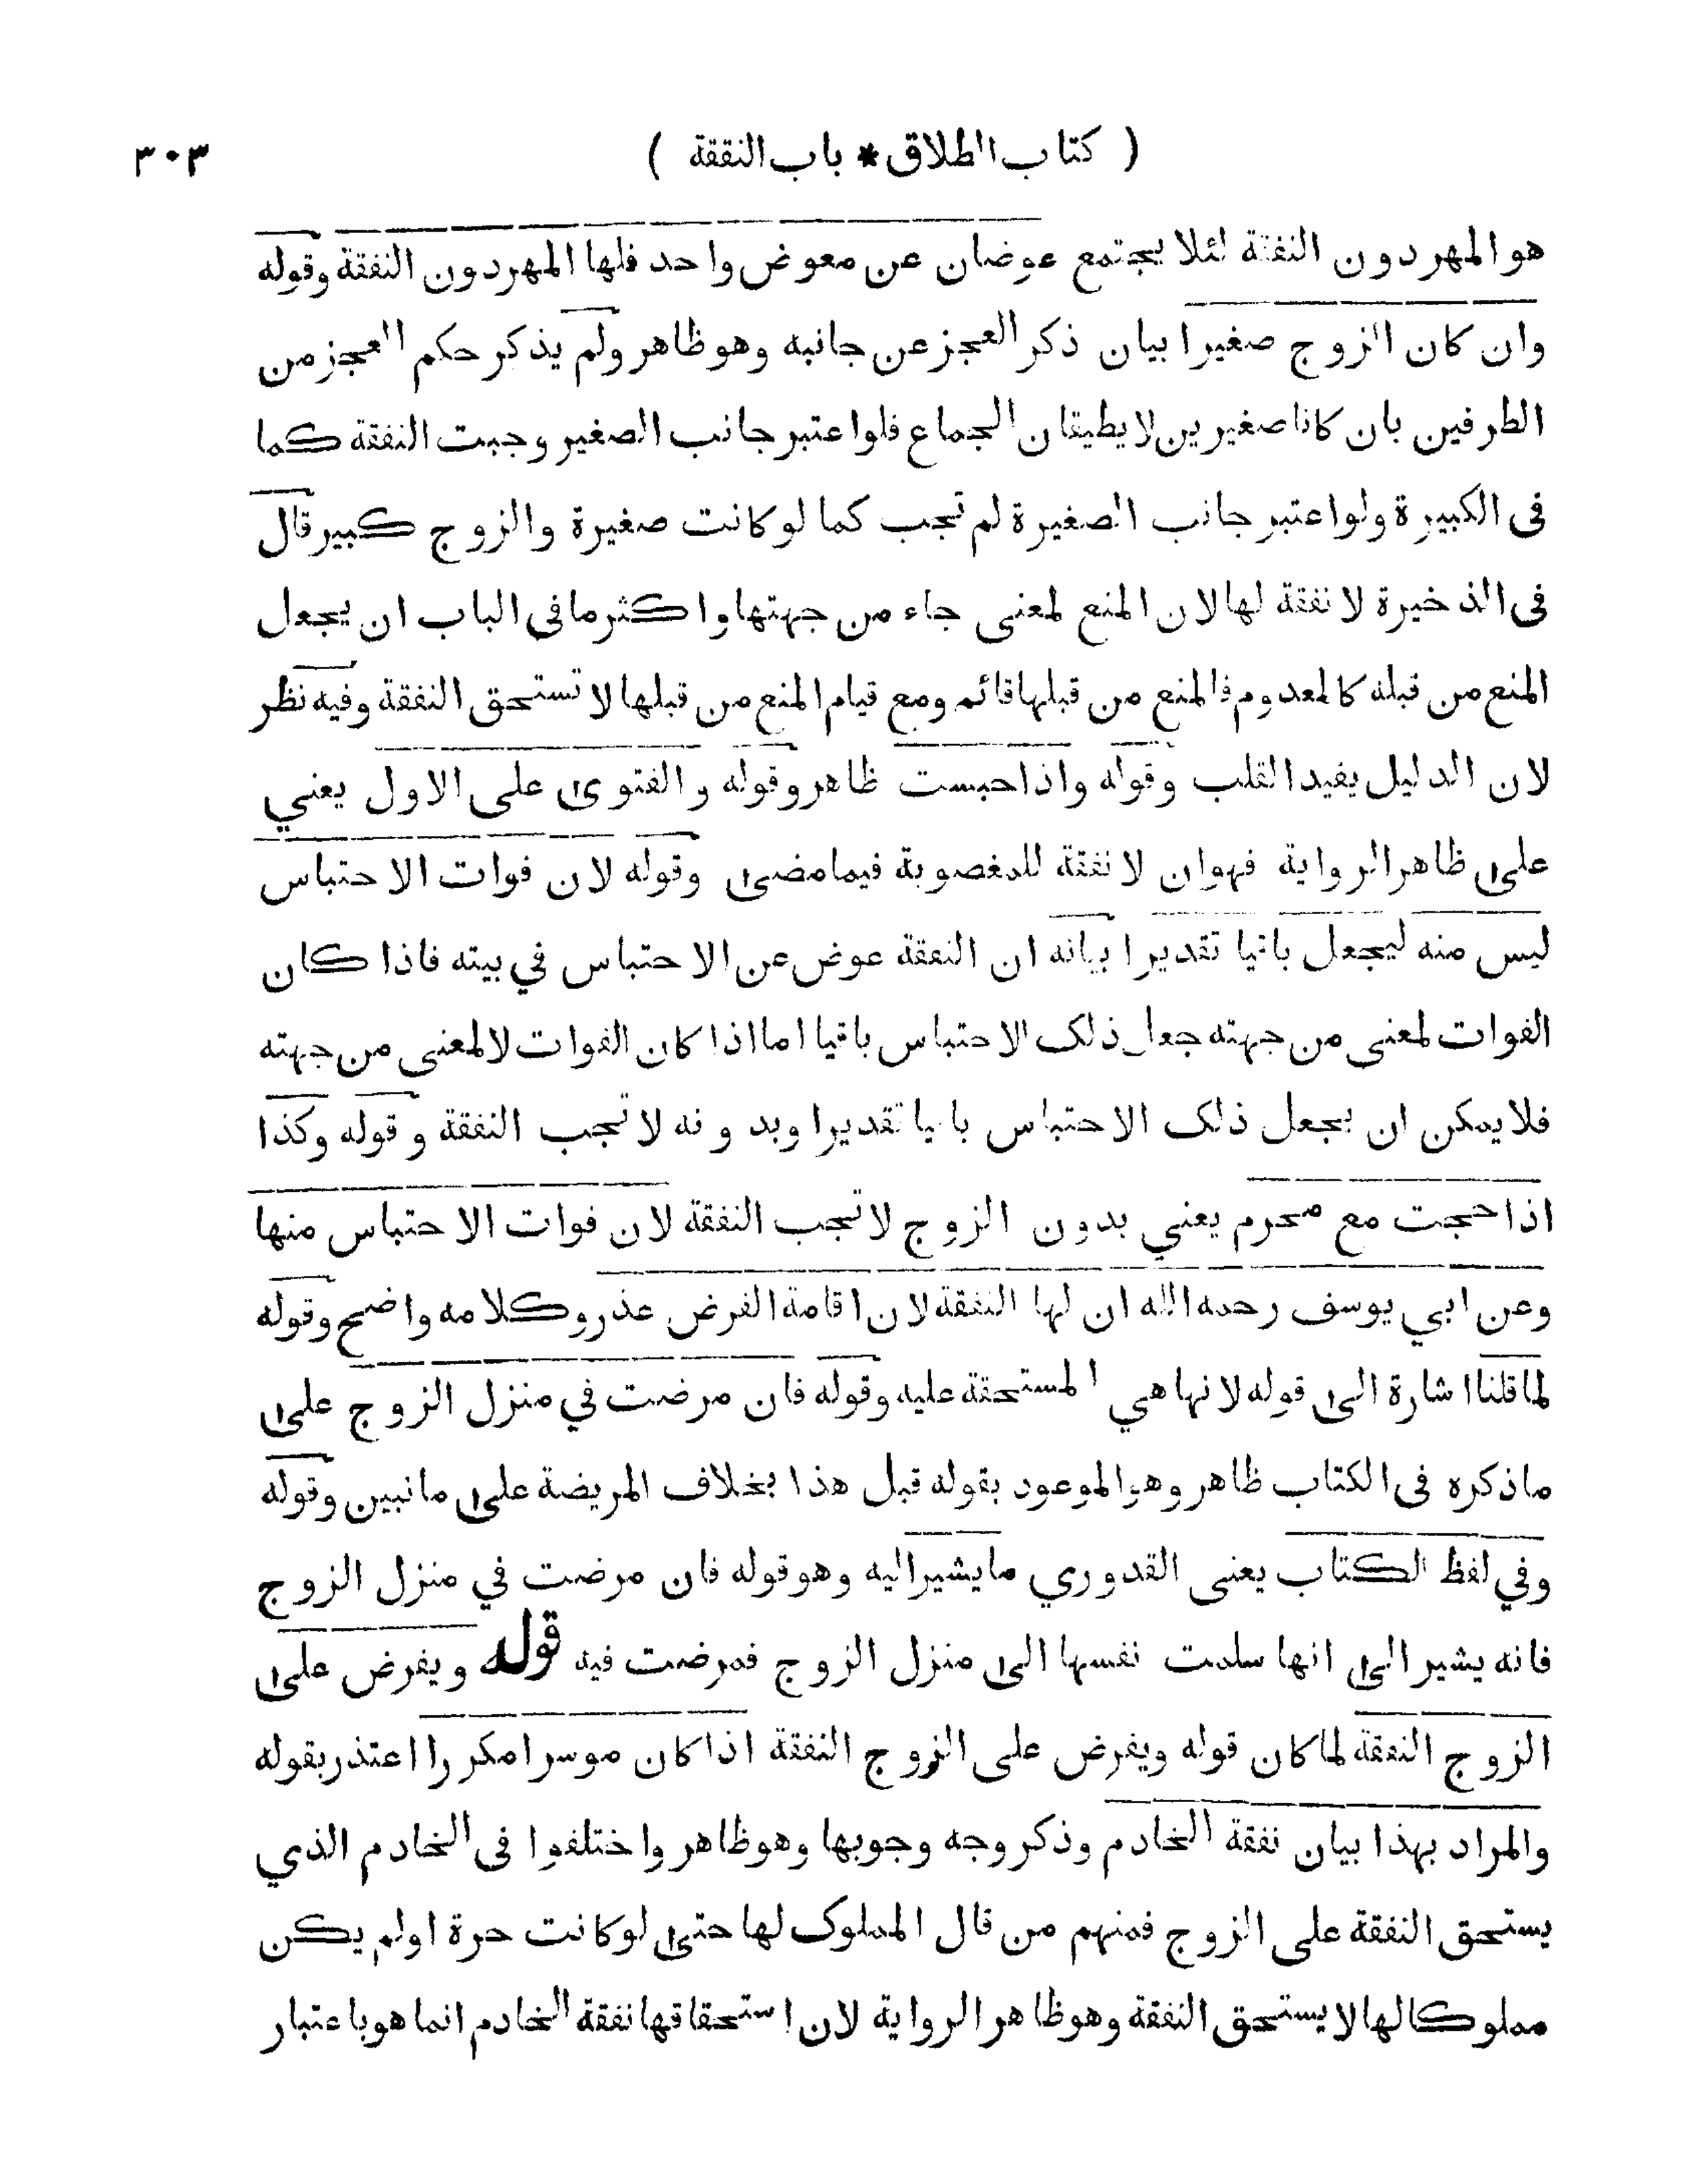 ( كتاب الطلاق * باب النفقة ) ٣٠٣
هو المهر دون النفقة لئلا يجتمع عوضان عن معوض واحد فلها المهر دون النفقة وقوله
وان كان الزوج صغيرا بيان ذكر العجز عن جانبه وهو ظاهر ولم يذكر حكم العجز من
الطرفين بان كانا صغيرين لا يطيقان الجماع فلو اعتبر جانب الصغير وجبت النفقة كما
فى الكبيرة ولو اعتبر جانب الصغيرة لم تجب كما لو كانت صغيرة والزوج كبير قال
فى الذخيرة لا نفقة لها لان المنع لمعنى جاء من جهتها واكثر ما فى الباب ان يجعل
المنع من قبله كالمعدوم فالمنع من قبلها قائم ومع قيام المنع من قبلها لا تستحق النفقة وفيه نظر
لان الدليل يفيد القلب وقوله واذا حبست ظاهر وقوله والفتوى على الاول يعني
على ظاهر الرواية فهو ان لا نفقة للمغصوبة فيما مضى وقوله لان فوات الاحتباس
ليس منه ليجعل باقيا تقديرا بيانه ان النفقة عوض عن الاحتباس في بيته فاذا كان
الفوات لمعنى من جهته جعل ذلك الاحتباس باقيا اما اذا كان الفوات لا لمعنى من جهته
فلا يمكن ان يجعل ذلك الاحتباس باقيا تقديرا وبدونه لا تجب النفقة وقوله وكذا
اذا حجت مع محرم يعني بدون الزوج لا تجب النفقة لان فوات الاحتباس منها
وعن ابي يوسف رحمه الله ان لها النفقة لان اقامة الفرض عذر وكلامه واضح وقوله
لما قلنا اشارة الى قوله لانها هي المستحقة عليه وقوله فان مرضت في منزل الزوج على
ما ذكره فى الكتاب ظاهر وهو الموعود بقوله قبل هذا بخلاف المريضة على ما نبين وقوله
وفي لفظ الكتاب يعنى القدوري ما يشير اليه وهو قوله فان مرضت في منزل الزوج
فانه يشير الى انها سلمت نفسها الى منزل الزوج فمرضت فيه قوله ويفرض على
الزوج النفقة لما كان قوله ويفرض على الزوج النفقة اذا كان موسرا مكررا اعتذر بقوله
والمراد بهذا بيان نفقة الخادم وذكر وجه وجوبها وهو ظاهر واختلفوا فى الخادم الذي
يستحق النفقة على الزوج فمنهم من قال المملوك لها حتى لو كانت حرة او لم يكن
مملوكا لها لا يستحق النفقة وهو ظاهر الرواية لان استحقاقها نفقة الخادم انما هو باعتبار